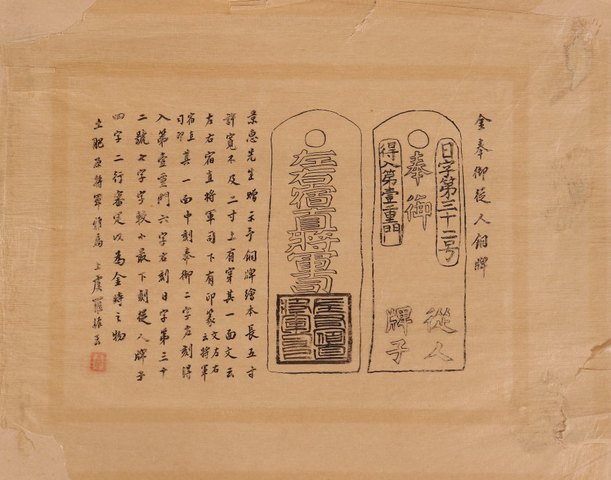 金奉御從人銅牌
日字第三十二号
奉御
得入第壹重門
從人
牌子
左右宿直將軍司
景惠先生贈示予銅牌繪本長五寸
許寬不及二寸上有穿其一面文云
左右宿直將軍司下有印篆文左右云將軍
宿直司印其一面中刻奉御二字左刻得
入第壹重門六字右刻日字第三十
二號七字字較小最下刻從人牌子
四字二行審定以為金時之物
土肥原將軍雅屬 上虞羅振玉